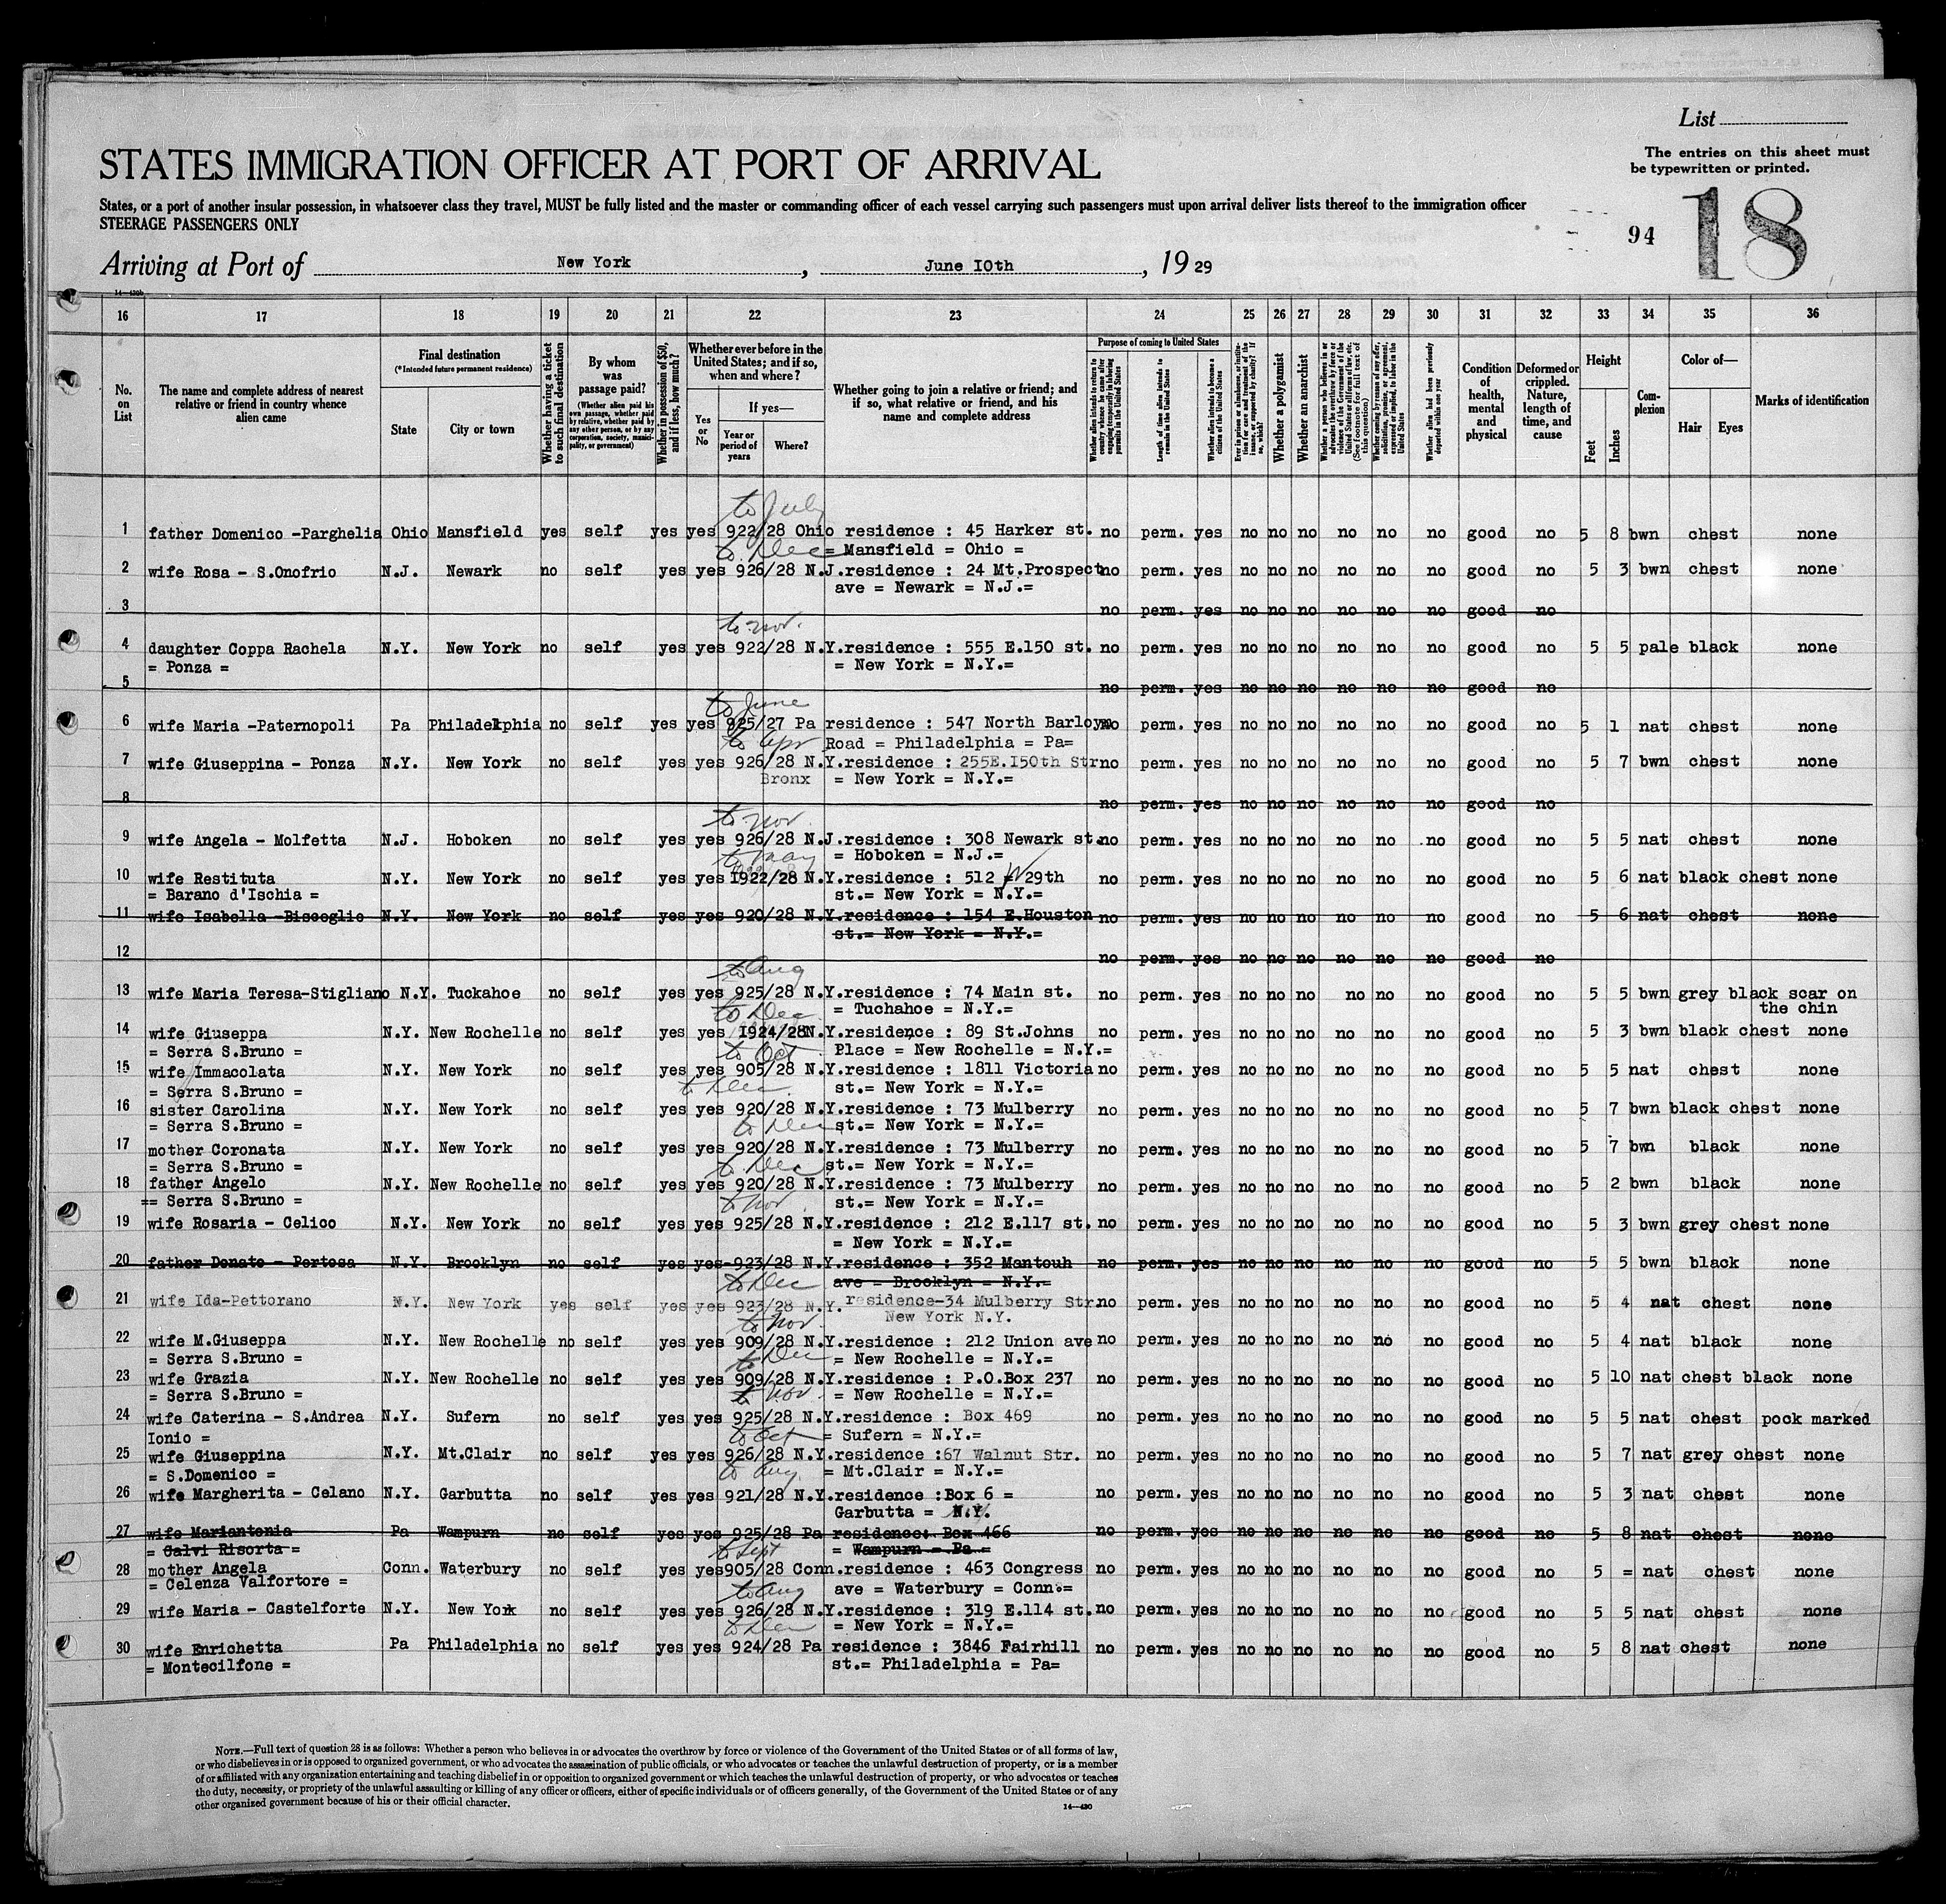 List
The entries on this sheet must
be typewritten or printed.
STATES IMMIGRATION OFFICER AT PORT OF ARRIVAL
States, or a port of another insular possession, in whatsoever class they travel, MUST be fully listed and the master or commanding officer of each vessel carrying such passengers must upon arrival deliver lists thereof to the immigration officer
STEERAGE PASSENGERS ONLY
94 18
Arriving at Port of New York, June 10th, 19 29
14—430b
16 17 18 19 20 21 22 23 24 25 26 27 28 29 30 31 32 33 34 35 36
No. on List
The name and complete address of nearest relative or friend in country whence alien came
Final destination
(*Intended future permanent residence)
State
City or town
Whether having a ticket to such final destination
By whom was passage paid?
(Whether alien paid his own passage, whether paid by relative, whether paid by any other person, or by any corporation, society, municipality, or government)
Whether in possession of $50, and if less, how much?
Whether ever before in the United States; and if so, when and where?
Yes or No
If yes—
Year or period of years
Where?
Whether going to join a relative or friend; and if so, what relative or friend, and his name and complete address
Purpose of coming to United States
Length of time alien intends to remain in the United States
Whether alien intends to become a citizen of the United States
Whether a polygamist
Whether an anarchist
Whether alien had been previously deported within one year
Condition of health, mental and physical
Deformed or crippled. Nature, length of time, and cause
Height
Feet
Inches
Complexion
Color of—
Hair
Eyes
Marks of identification
to July
1 father Domenico -Parghelia Ohio Mansfield yes self yes yes 922/28 Ohio residence : 45 Harker st. no perm. yes no no no no no no good no 5 8 bwn chest none
to Dec = Mansfield = Ohio =
2 wife Rosa - S.Onofrio N.J. Newark no self yes yes 926/28 N.J.residence : 24 Mt.Prospect no perm. yes no no no no no no good no 5 3 bwn chest none
ave = Newark = N.J.=
3 no perm. yes no no no no no no good no
to nov.
4 daughter Coppa Rachela N.Y. New York no self yes yes 922/28 N.Y.residence : 555 E.150 st. no perm. yes no no no no no no good no 5 5 pale black none
= Ponza = = New York = N.Y.=
5 no perm. yes no no no no no no good no
to June
6 wife Maria -Paternopoli Pa Philadelphia no self yes yes 925/27 Pa residence : 547 North no perm. yes no no no no no no good no 5 1 nat chest none
to Apr Road = Philadelphia = Pa=
7 wife Giuseppina - Ponza N.Y. New York no self yes yes 926/28 N.Y.residence : 255E.I50th Str no perm. yes no no no no no no good no 5 7 bwn chest none
Bronx = New York = N.Y.=
8 no perm. yes no no no no no no good no
to nov.
9 wife Angela - Molfetta N.J. Hoboken no self yes yes 926/28 N.J.residence : 308 Newark st. no perm. yes no no no no no no good no 5 5 nat chest none
to may = Hoboken = N.J.=
10 wife Restituta N.Y. New York no self yes yes I922/28 N.Y.residence : 512 W 29th no perm. yes no no no no no no good no 5 6 nat black chest none
= Barano d'Ischia = st.= New York = N.Y.=
11 wife Isabella -Bisceglie N.Y. New York no self yes yes 920/28 N.Y.residence : 154 E.Houston no perm. yes no no no no no no good no 5 6 nat chest none
st.= New York = N.Y.=
12 no perm. yes no no no no no no good no
to Aug
13 wife Maria Teresa-Stigliano N.Y. Tuckahoe no self yes yes 925/28 N.Y.residence : 74 Main st. no perm. yes no no no no no no good no 5 5 bwn grey black scar on
to Dec = Tuchahoe = N.Y.= the chin
14 wife Giuseppa N.Y. New Rochelle no self yes yes I924/28N.Y.residence : 89 St.Johns no perm. yes no no no no no no good no 5 3 bwn black chest none
= Serra S.Bruno = to Oct Place = New Rochelle = N.Y.=
15 wife Immacolata N.Y. New York no self yes yes 905/28 N.Y.residence : 1811 Victoria no perm. yes no no no no no no good no 5 5 nat chest none
= Serra S.Bruno = to Dec st.= New York = N.Y.=
16 sister Carolina N.Y. New York no self yes yes 920/28 N.Y.residence : 73 Mulberry no perm. yes no no no no no no good no 5 7 bwn black chest none
= Serra S.Bruno = to Dec st.= New York = N.Y.=
17 mother Coronata N.Y. New York no self yes yes 920/28 N.Y.residence : 73 Mulberry no perm. yes no no no no no no good no 5 7 bwn black none
= Serra S.Bruno = to Dec st.= New York = N.Y.=
18 father Angelo N.Y. New Rochelle no self yes yes 920/28 N.Y.residence : 73 Mulberry no perm. yes no no no no no no good no 5 2 bwn black none
== Serra S.Bruno = to nov st.= New York = N.Y.=
19 wife Rosaria - Celico N.Y. New York no self yes yes 925/28 N.Y.residence : 212 E.117 st. no perm. yes no no no no no no good no 5 3 bwn grey chest none
= New York = N.Y.=
20 father Donato - Pertosa N.Y. Brooklyn no self yes yes 923/28 N.Y.residence : 352 Montouh no perm. yes no no no no no no good no 5 5 bwn black none
to Dec ave = Brooklyn = N.Y.=
21 wife Ida-Pettorano N.Y. New York yes self yes yes 923/28 N.Y. residence-34 Mulberry Str. no perm. yes no no no no no no good no 5 4 nat chest none
to nov. New York N.Y.
22 wife M.Giuseppa N.Y. New Rochelle no self yes yes 909/28 N.Y.residence : 212 Union ave no perm. yes no no no no no no good no 5 4 nat black none
= Serra S.Bruno = to Dec = New Rochelle = N.Y.=
23 wife Grazia N.Y. New Rochelle no self yes yes 909/28 N.Y.residence : P.O.Box 237 no perm. yes no no no no no no good no 5 10 nat chest black none
= Serra S.Bruno = to nov. = New Rochelle = N.Y.=
24 wife Caterina - S.Andrea N.Y. Sufern no self yes yes 925/28 N.Y.residence : Box 469 no perm. yes no no no no no no good no 5 5 nat chest pock marked
Ionio = to Oct = Sufern = N.Y.=
25 wife Giuseppina N.Y. Mt.Clair no self yes yes 926/28 N.Y.residence :67 Walnut Str. no perm. yes no no no no no no good no 5 7 nat grey chest none
= S.Domenico = to Aug. = Mt.Clair = N.Y.=
26 wife Margherita - Celano N.Y. Garbutta no self yes yes 921/28 N.Y.residence :Box 6 = no perm. yes no no no no no no good no 5 3 nat chest none
Garbutta = N.Y.
27 wife Mariantonia Pa Wampurn no self yes yes 925/28 Pa residence: Box 466 no perm. yes no no no no no no good no 5 8 nat chest none
= Calvi Risorta = to Sept = Wampurn = Pa =
28 mother Angela Conn. Waterbury no self yes yes905/28 Conn.residence : 463 Congress no perm. yes no no no no no no good no 5 = nat chest none
= Celenza Valfortore = to Aug ave = Waterbury = Conn.=
29 wife Maria - Castelforte N.Y. New York no self yes yes 926/28 N.Y.residence : 319 E.114 st. no perm. yes no no no no no no good no 5 5 nat chest none
to Dec = New York = N.Y.=
30 wife Enrichetta Pa Philadelphia no self yes yes 924/28 Pa residence : 3846 Fairhill no perm. yes no no no no no no good no 5 8 nat chest none
= Montecilfone = st.= Philadelphia = Pa=
NOTE.—Full text of question 28 is as follows: Whether a person who believes in or advocates the overthrow by force or violence of the Government of the United States or of all forms of law,
or who disbelieves in or is opposed to organized government, or who advocates the assassination of public officials, or who advocates or teaches the unlawful destruction of property, or is a member
of or affiliated with any organization entertaining and teaching disbelief in or opposition to organized government or which teaches the unlawful destruction of property, or who advocates or teaches
the duty, necessity, or propriety of the unlawful assaulting or killing of any officer or officers, either of specific individuals or of officers generally, of the Government of the United States or of any
other organized government because of his or their official character.
14—430